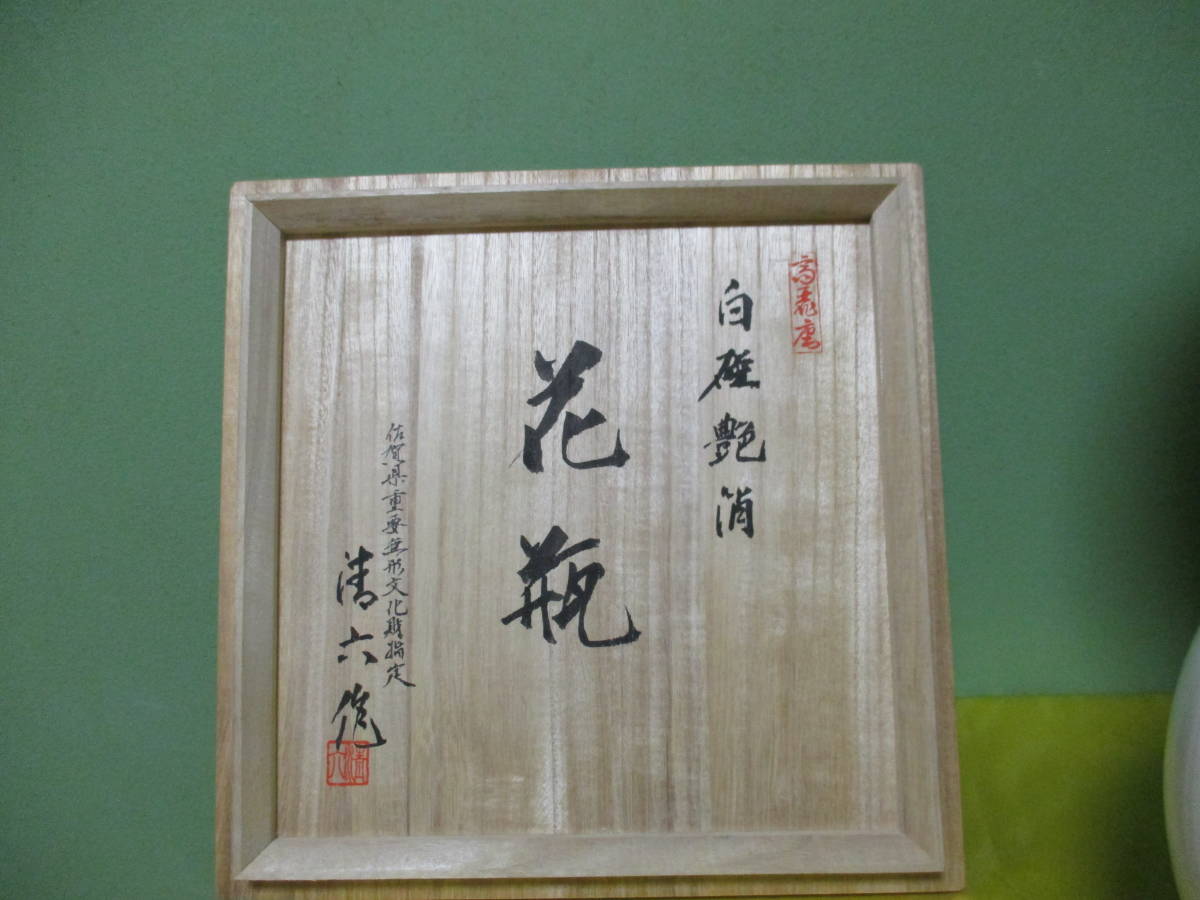 高麗庵
白磁艶消
花瓶
佐賀県重要無形文化財指定
清六作
清六